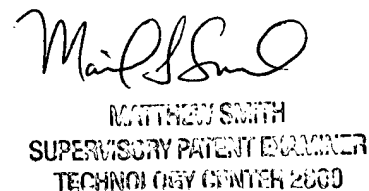 MATTHEW SMITH
SUPERVISORY PATENT EXAMINER
TECHNOLOGY CENTER 2800